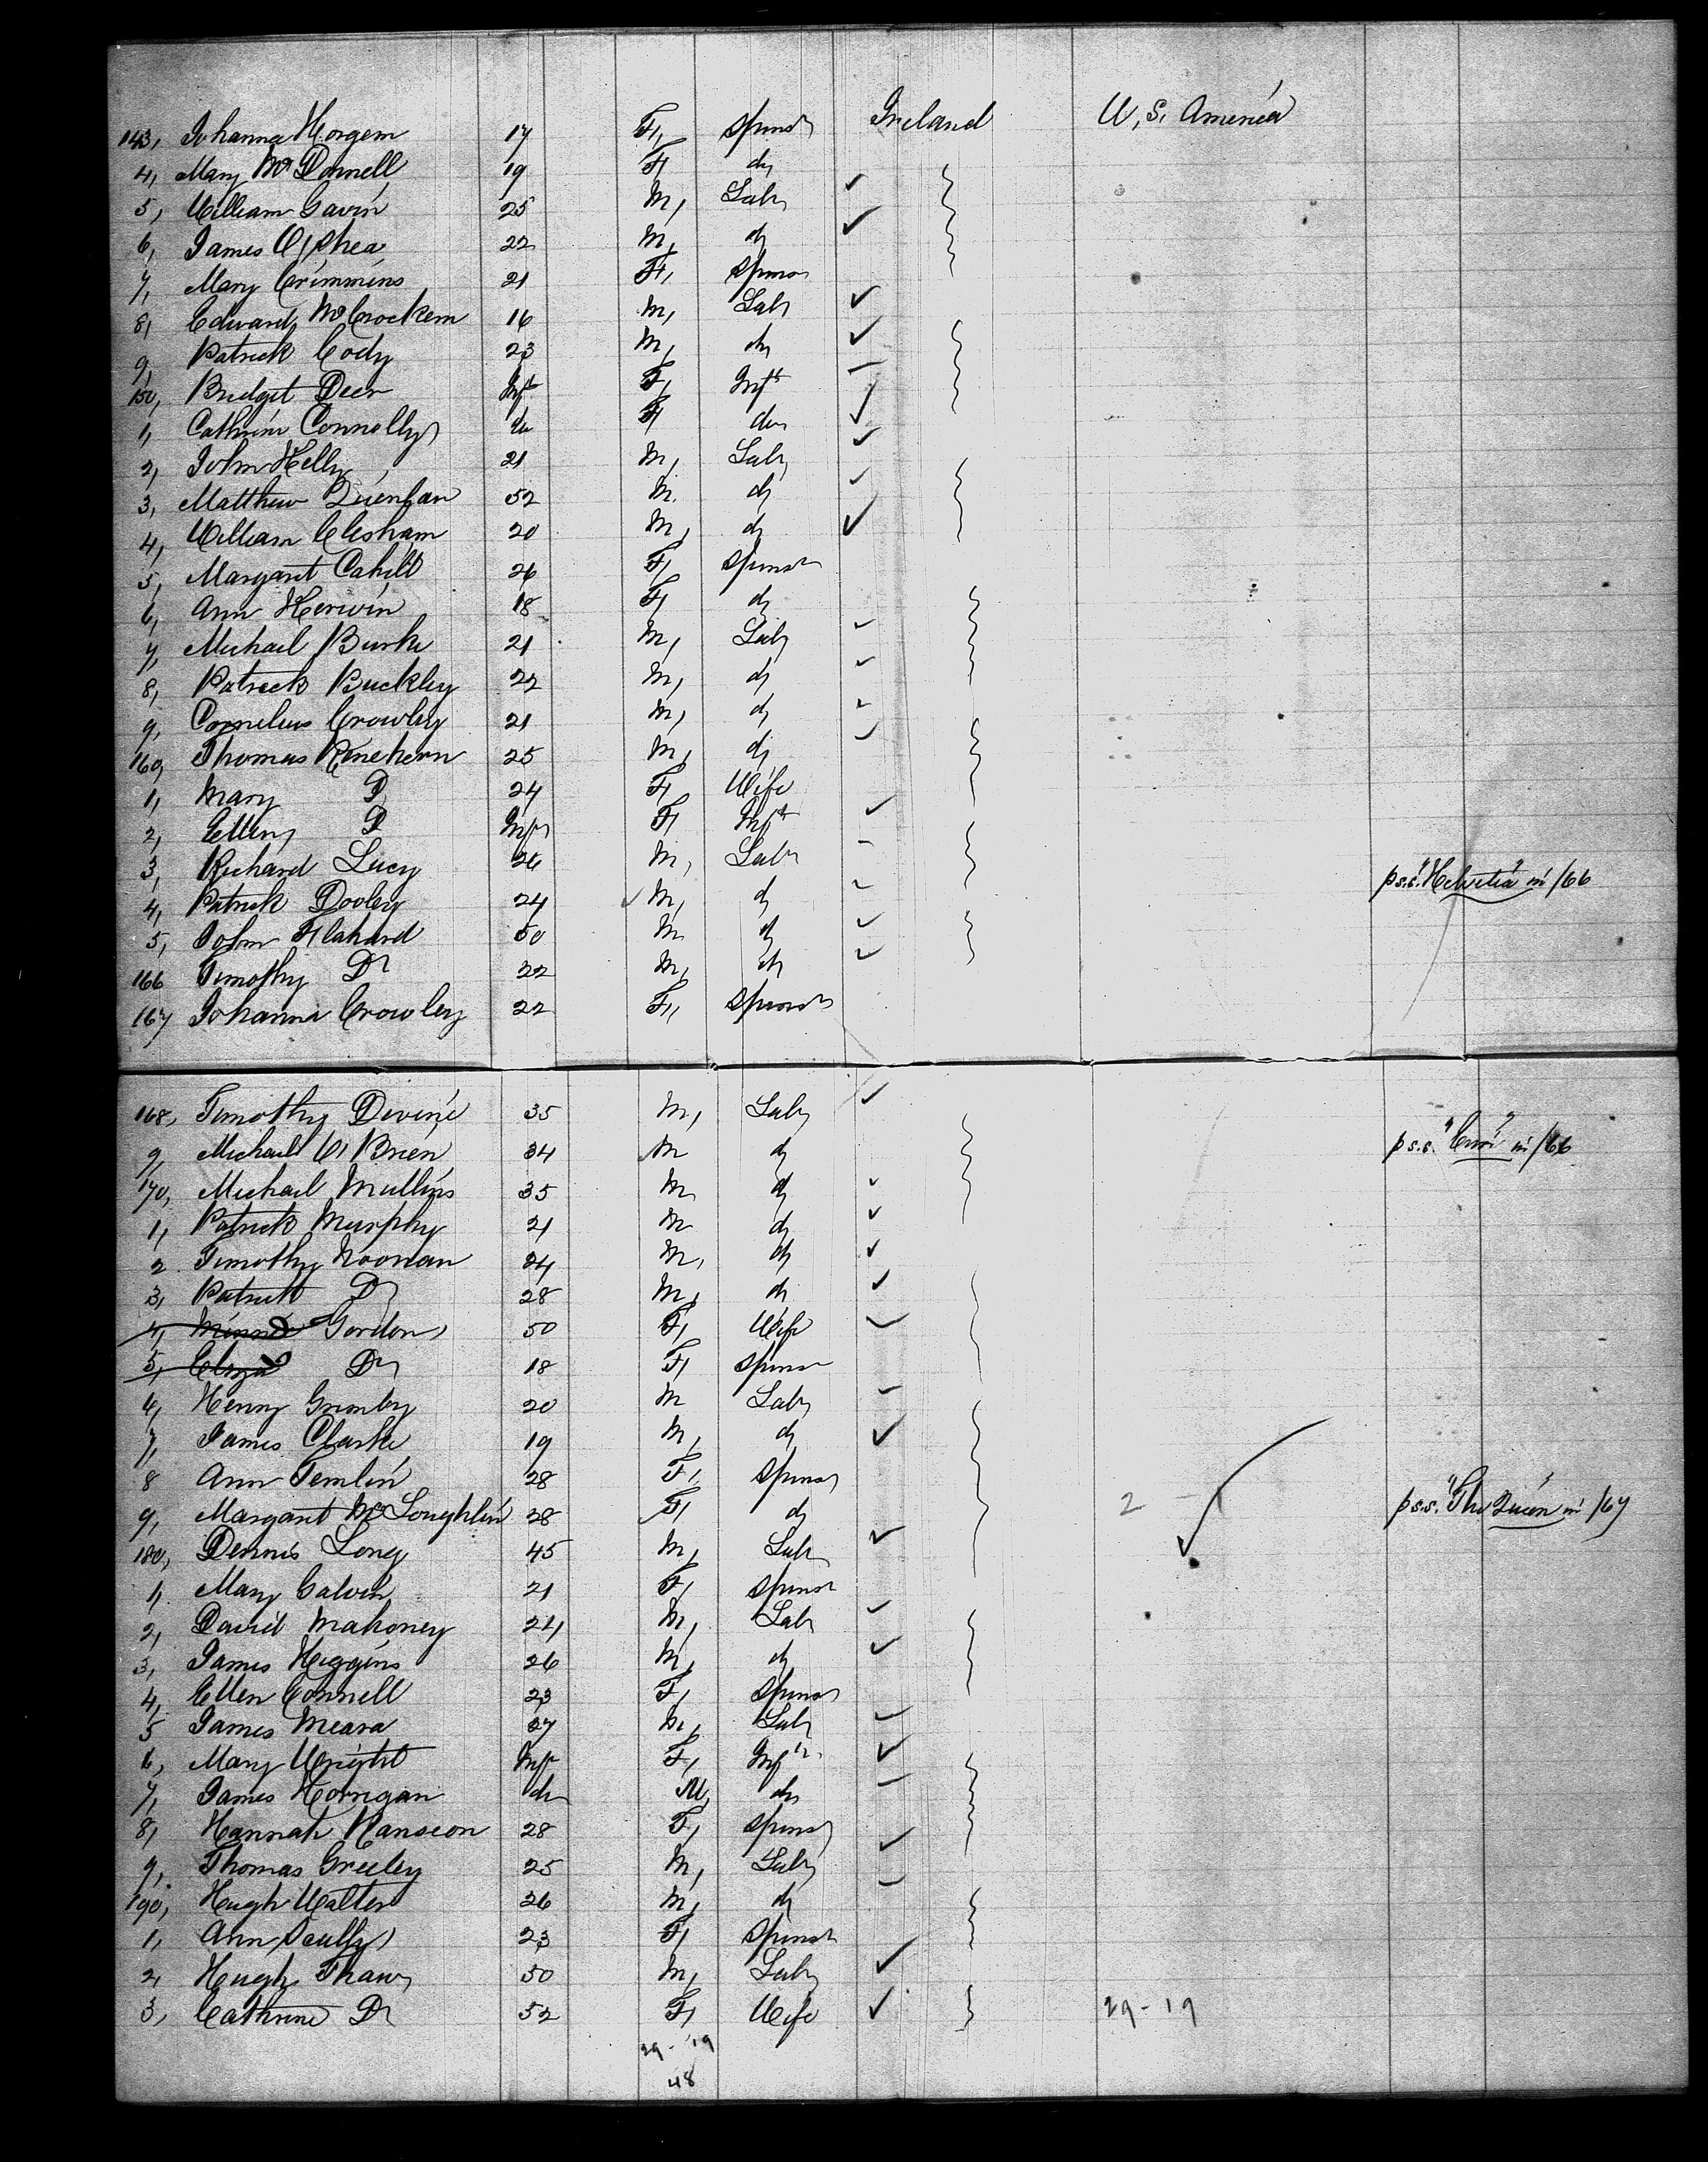 143, Johanna Horgem 17 F, Spinsr Ireland U, S, America
4, Mary McDonnell 19 F, do
5, William Gavin 25 M, Labr
6, James O'Shea 22 M, do
7, Mary Crimmins 21 F, Spinsr
8, Edward McCrockem 16 M, Labr
9, Patrick Cody 23 M, do
150, Bridget Deer Inft F, Inft
1, Cathrine Connolly do F do
2, John Kelly 21 M, Labr
3, Matthew Quenlan 52 M, do
4, William Clesham 20 M, do
5, Margaret Cahill 26 F, Spinsr
6, Ann Kerwin 18 F, do
7, Michael Burke 21 M, Labr
8, Patrick Buckley 22 M, do
9, Cornelius Crowley 21 M, do
160, Thomas Kinehern 25 M, do
1, Mary Do 24 F, Wife
2, Ellen Do Inft F, Inft
3, Richard Lucy 26 M, Labr
4, Patrick Dooley 24 M, do p s.s. "Helvetia" in /66
5, John Flahard 50 M do
166 Timothy Do 22 M, do
167 Johanna Crowley 22 F, Spinsr
168, Timothy Devine 35 M, Labr
9, Michael O'Brien 34 M do p s.s. in /66
170, Michael Mullins 35 M, do
1, Patrick Murphy 21 M do
2 Timothy Noonan 24 M, do
3, Patrick Do 28 M, do
4, Gordon 50 F, Wife
5, Eliza Do 18 F, Spinsr
6, Henry Grimley 20 M Labr
7, James Clarke 19 M, do
8 Ann Temlin 28 F, Spinsr
9, Margaret McLoughlin 28 F, do 2 - 1 p s.s. "The Queen in /67
180, Dennis Long 45 M, Labr
1, Mary Galvin 21 F, Spinsr
2, David Mahoney 24 M, Labr
3, James Higgins 26 M, do
4, Ellen Connell 23 F, Spinsr
5 James Meara 27 M, Labr
6, Mary Wright Inft F, Inft
7, James Horrigan do M, do
8, Hannah Hanseon 28 F, Spinsr
9, Thomas Greeley 25 M, Labr
190, Hugh Walter 26 M, do
1, Ann Scully 23 F, Spinsr
2, Hugh Thaw 50 M, Labr
3, Cathrine Do 52 F, Wife 29 - 19
29 - 19
48